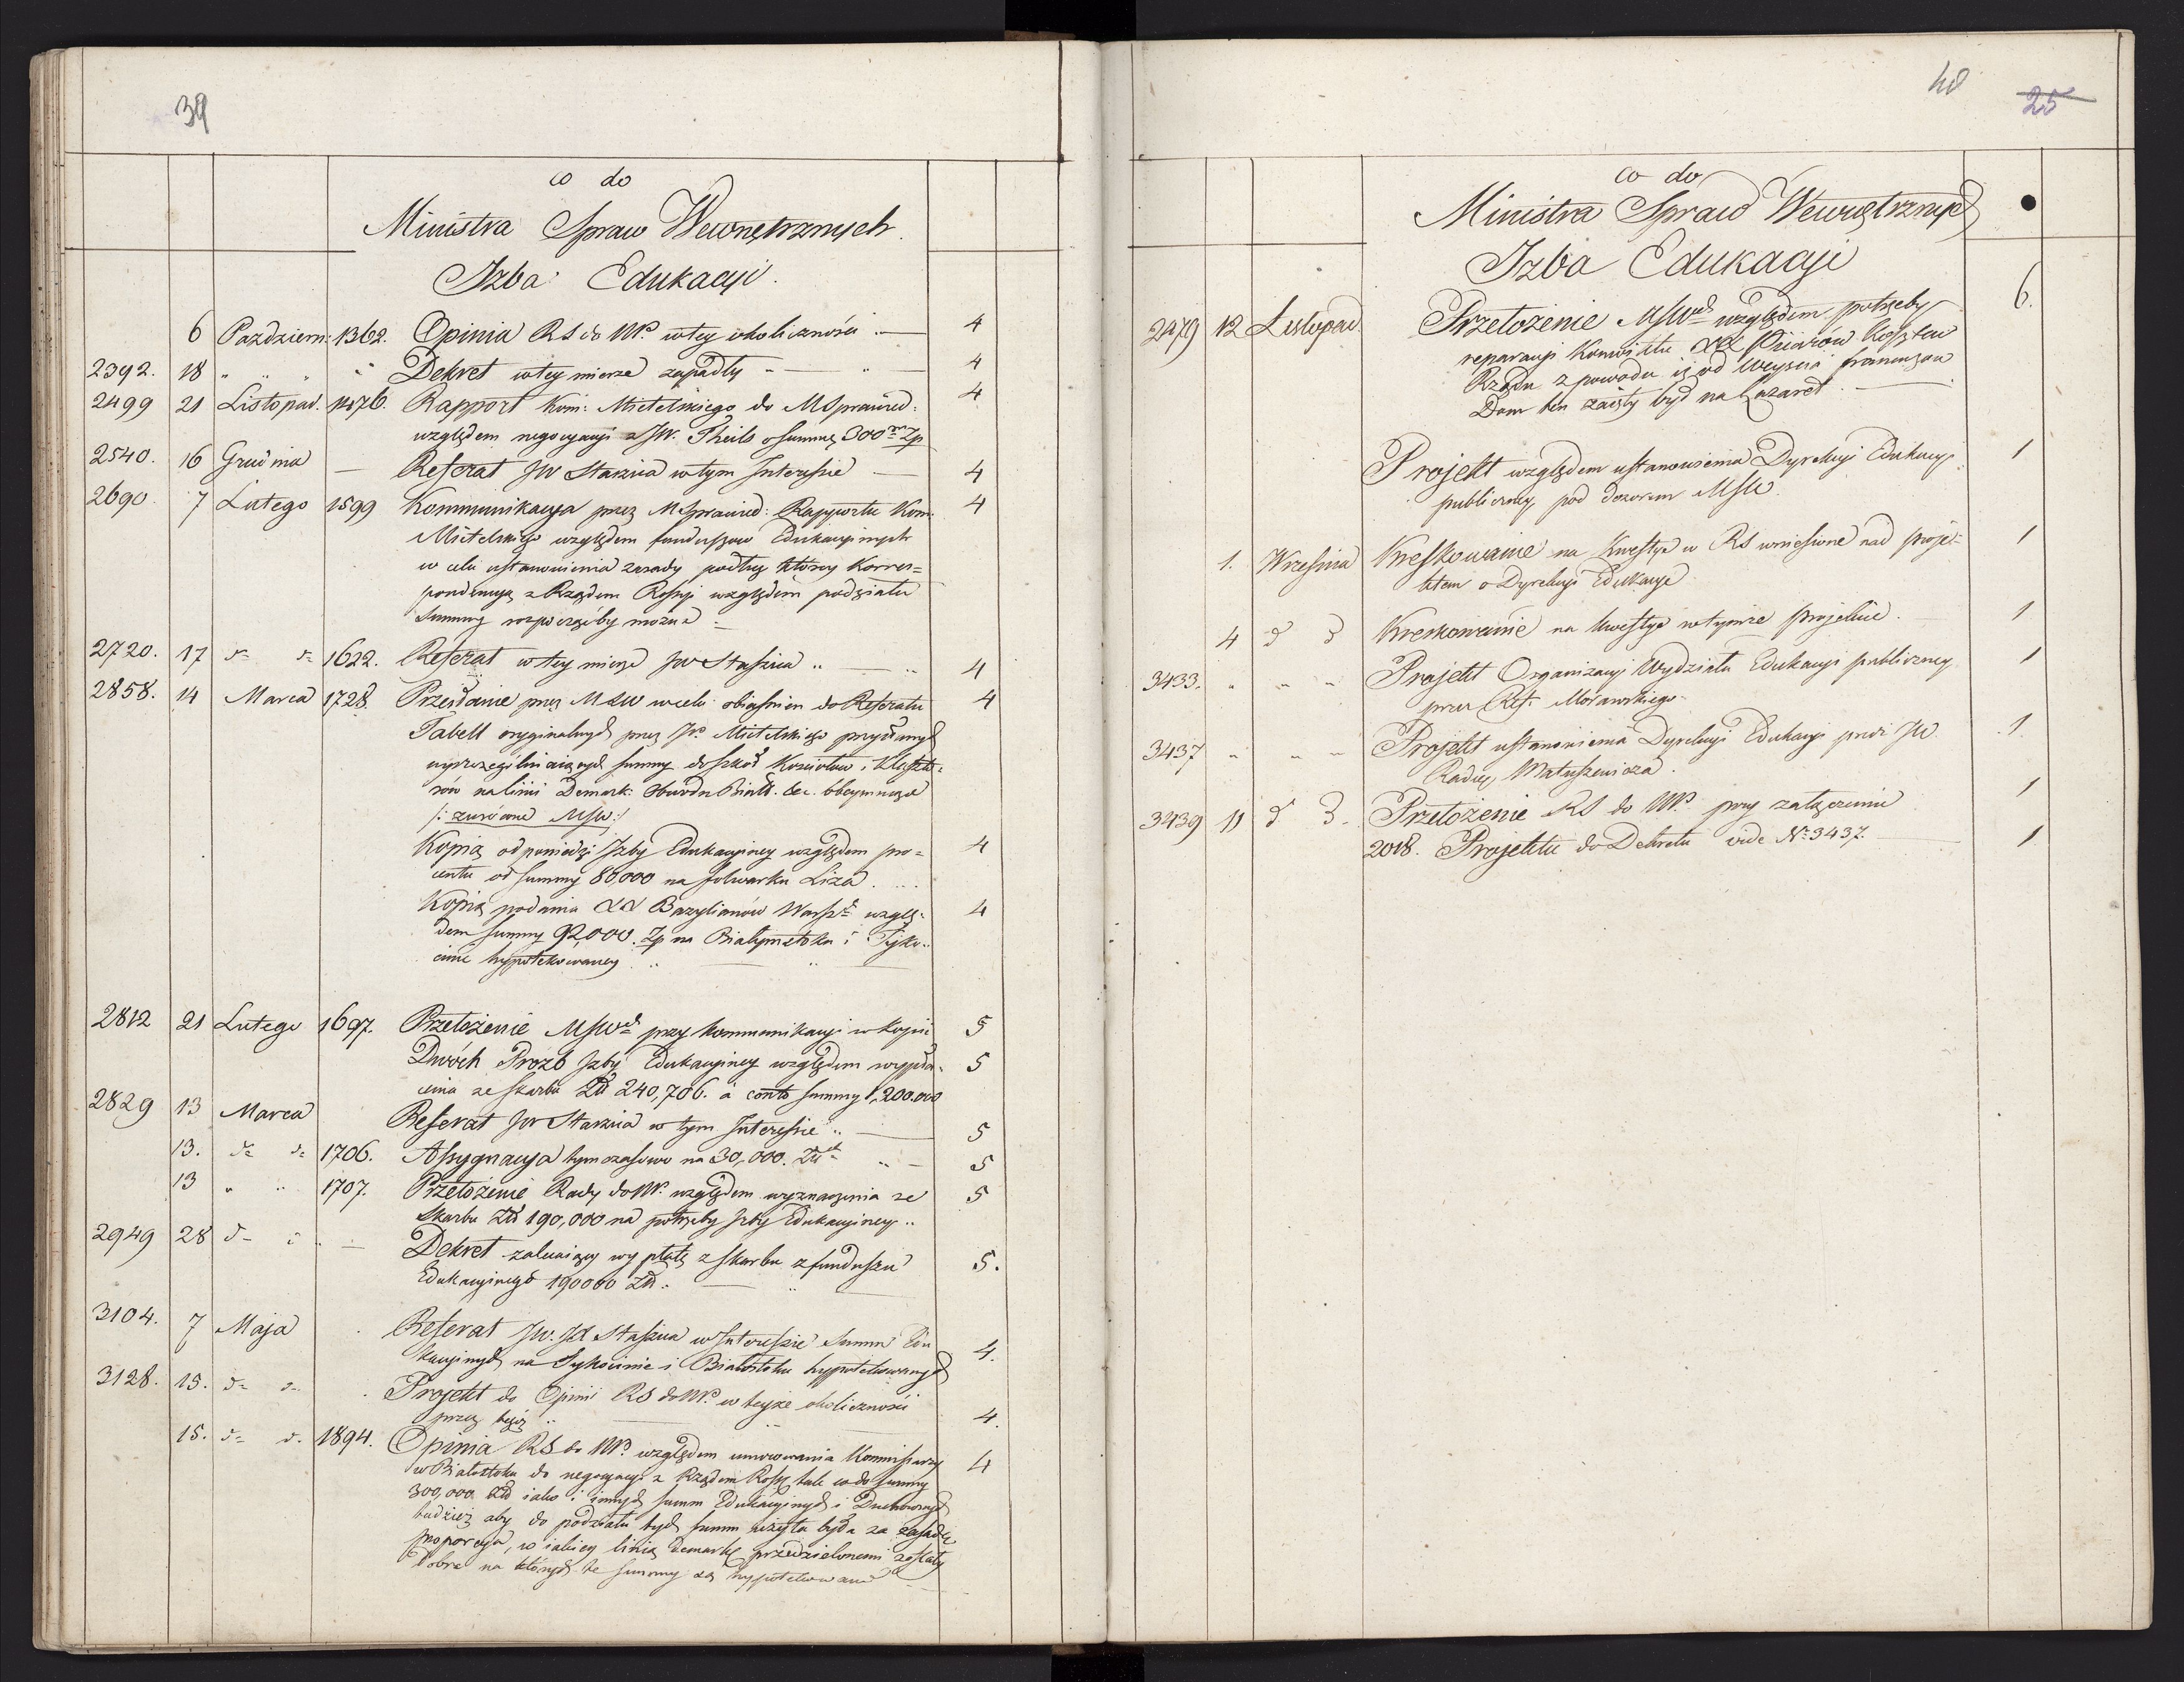 39
co do
Ministra Spraw Wewnętrznych
Izba Edukacyi.
6 Pazdziern: 1362. Opinia RS do NP. w tey okoliczności 4
2392. 18 " " " Dekret w tey mierze zapadły 4
2499 21 Listopad. 1476. Rapport Kom: Mietelskiego do MSprawied: 4
względem negocyacyi z JW. Theils o summę 300m Zp
2540. 16 Grudnia — Referat JW Staszica w tym Interessie — 4
2690. 7 Lutego 1599 Kommunikacya przez MSprawied: Rapportu Kom: 4
Mietelskiego względem funduszow Edukacyinych
w celu ustanowienia zasady podług którey Korres=
pondencyą z Rządem Rossyi względem podziału
Summy rozpocząćby można
2720. 17 d° d° 1622. Referat w tey mierze JW Staszica 4
2858. 14 Marca 1728. Przesłanie przez MSW w celu obiaśnien do Referatu 4
Tabell oryginalnych przez JP. Mietelskiego przysłanych
wyszczególniaiących summy do szkoł Kosciołow i Klaszto=
rów na linii Demark: Obwodu Biał. &c. obeymuiące
/: zwrócone MSW:/
Kopią odpowiedzi Izby Edukacyiney względem pro= 4
centu od summy 80,000 na folwarku Liza
Kopią podania XX Bazylianów Warsz: wzglę= 4
dem summy 92,000. Zp na Białymstoku i Tyko=
cinie hypotekowaney
2812 21 Lutego 1697. Przełożenie MSW przy kommunikacyi w kopii 5
Dwóch Proźb Izby Edukacyiney względem wypła= 5
cenia ze skarbu Zł 240,706. à conto summy 1,200.000
2829 13 Marca Referat JW Staszica w tym Interessie 5
13. d° d° 1706. Assygnacya tymczasowo na 30,000. Zł 5
13 " " 1707. Przełożenie Rady do NP. względem wyznaczenia ze 5
Skarbu Zł 190,000 na potrzeby Izby Edukacyiney
2949 28 d° Dekret zalecaiący wypłatę z skarbu z funduszu 5.
Edukacyinego 190000 Zł.
3104. 7 Maja Referat JW. JX Staszica w Interessie Summ Edu 4.
kacyinych na Tykocinie i Białostoku hypotekowanych
3128. 15. d° d° Projekt do Opinii RS do NP. w teyże okoliczności 4.
przez tegoż
15. d° d. 1894. Opinia RS do NP. względem umocowania Kommissarzy 4
w Białostoku do negocyacyi z Rządem Rossy: tak co do summy
300,000 Zł iako i innych summ Edukacyinych i Duchownych
tudzież aby do podziału tych summ użyta była za zasadę
proporcya, w iakiey linią Demark: przedzielonemi zostały
Dobra na których te summy są hypotekowane
40
25
co do
Ministra Spraw Wewnętrznych
Izba Edukacyi
2479 12 Listopad. Przełożenie MSW względem potrzeby 6.
reparacyi Konwiktu XX Piiarów kosztem
Rządu z powodu iż od weyscia francuzow
Dom ten zaięty był na Lazaret
Projekt względem ustanowienia Dyrekcyi Edukacyi 1
publiczney pod dozorem MSW.
1. Wrzesnia Kreskowanie na kwestye w RS wniesione nad proje= 1
ktem o Dyrekcyi Edukacyi
4 d° d° Kreskowanie na kwestye w tymże projekcie. 1
3433. " " " Projekt Organizacyi Wydziału Edukacyi publiczney 1
przez Ref. Morawskiego
3437 " " Projekt ustanowienia Dyrekcyi Edukacyi przez JW 1.
Radcę Matuszewicza.
3439 11 d° d°. Przełożenie RS do NP. przy załączeniu 1
2018. Projektu do Dekretu vide N° 3437. 1